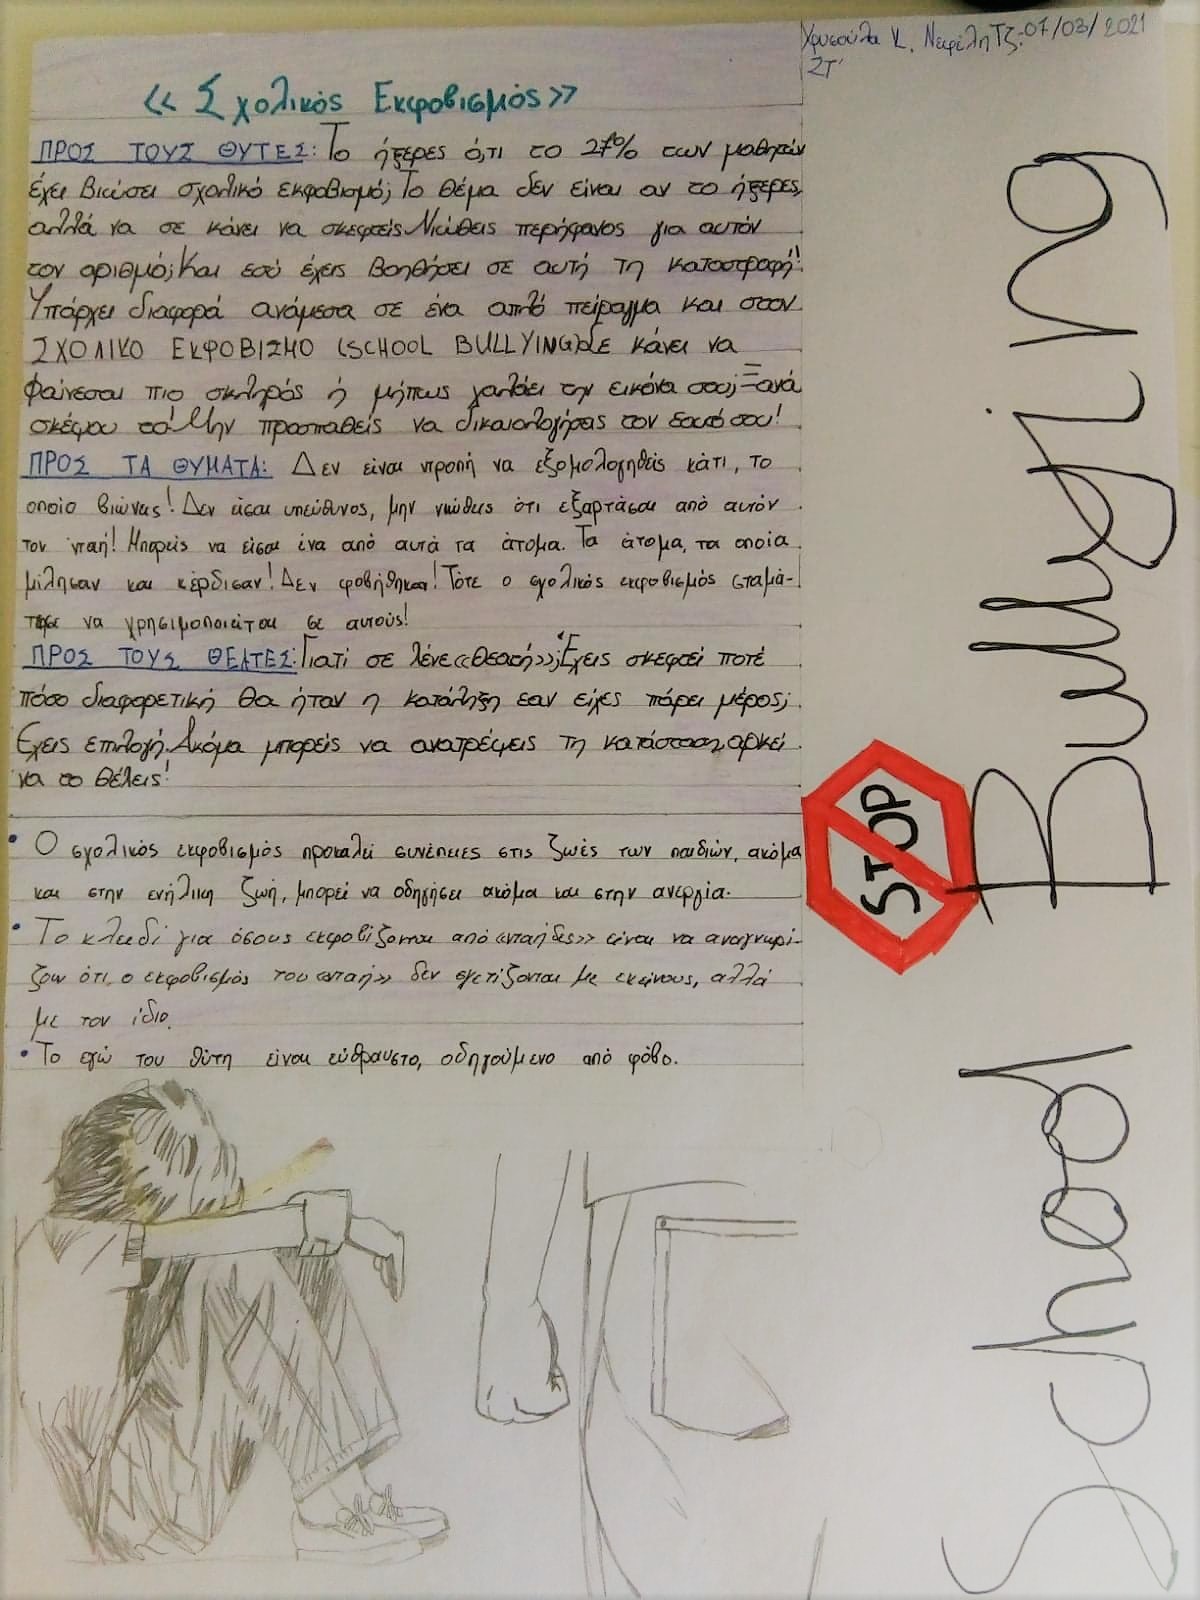 Χρυσούλα Κ. Νεφέλη Τζ. 07/03/2021
ΣΤ'
<< Σχολικός Εκφοβισμός >>
ΠΡΟΣ ΤΟΥΣ ΘΥΤΕΣ: Το ήξερες ό,τι το 27% των μαθητών
έχει βιώσει σχολικό εκφοβισμό; Το θέμα δεν είναι αν το ήξερες,
αλλά να σε κάνει να σκεφτείς. Νιώθεις περήφανος για αυτόν
τον αριθμό; Και εσύ έχεις βοηθήσει σε αυτή τη καταστροφή!
Υπάρχει διαφορά ανάμεσα σε ένα απλό πείραγμα και στον
ΣΧΟΛΙΚΟ ΕΚΦΟΒΙΣΜΟ (SCHOOL BULLYING). Σε κάνει να
φαίνεσαι πιο σκληρός ή μήπως χαλάει την εικόνα σου; Ξανά
σκέψου το! Μην προσπαθείς να δικαιολογήσεις τον εαυτό σου!
ΠΡΟΣ ΤΑ ΘΥΜΑΤΑ: Δεν είναι ντροπή να εξομολογηθείς κάτι, το
οποίο βιώνεις! Δεν είσαι υπεύθυνος, μην νιώθεις ότι εξαρτάσαι από αυτόν
τον νταή! Μπορείς να είσαι ένα από αυτά τα άτομα. Τα άτομα, τα οποία
μίλησαν και κέρδισαν! Δεν φοβήθηκαν! Τότε ο σχολικός εκφοβισμός σταμά-
τησε να χρησιμοποιείται σε αυτούς!
ΠΡΟΣ ΤΟΥΣ ΘΕΑΤΕΣ: Γιατί σε λένε <<θεατή>>; Έχεις σκεφτεί ποτέ
πόσο διαφορετική θα ήταν η κατάληξη εαν είχες πάρει μέρος;
Έχεις επιλογή. Ακόμα μπορείς να ανατρέψεις τη κατάσταση, αρκεί
να το θέλεις!
• Ο σχολικός εκφοβισμός προκαλεί συνέπειες στις ζωές των παιδιών, ακόμα
και στην ενήλικη ζωή, μπορεί να οδηγήσει ακόμα και στην ανεργία.
• Το κλειδί για όσους εκφοβίζονται από <<νταήδες>> είναι να αναγνωρί-
ζουν ότι, ο εκφοβισμός του <<νταή>> δεν σχετίζονται με εκείνους, αλλά
με τον ίδιο.
• Το εγώ του θύτη είναι εύθραυστο, οδηγούμενο από φόβο.
School Bullying
STOP